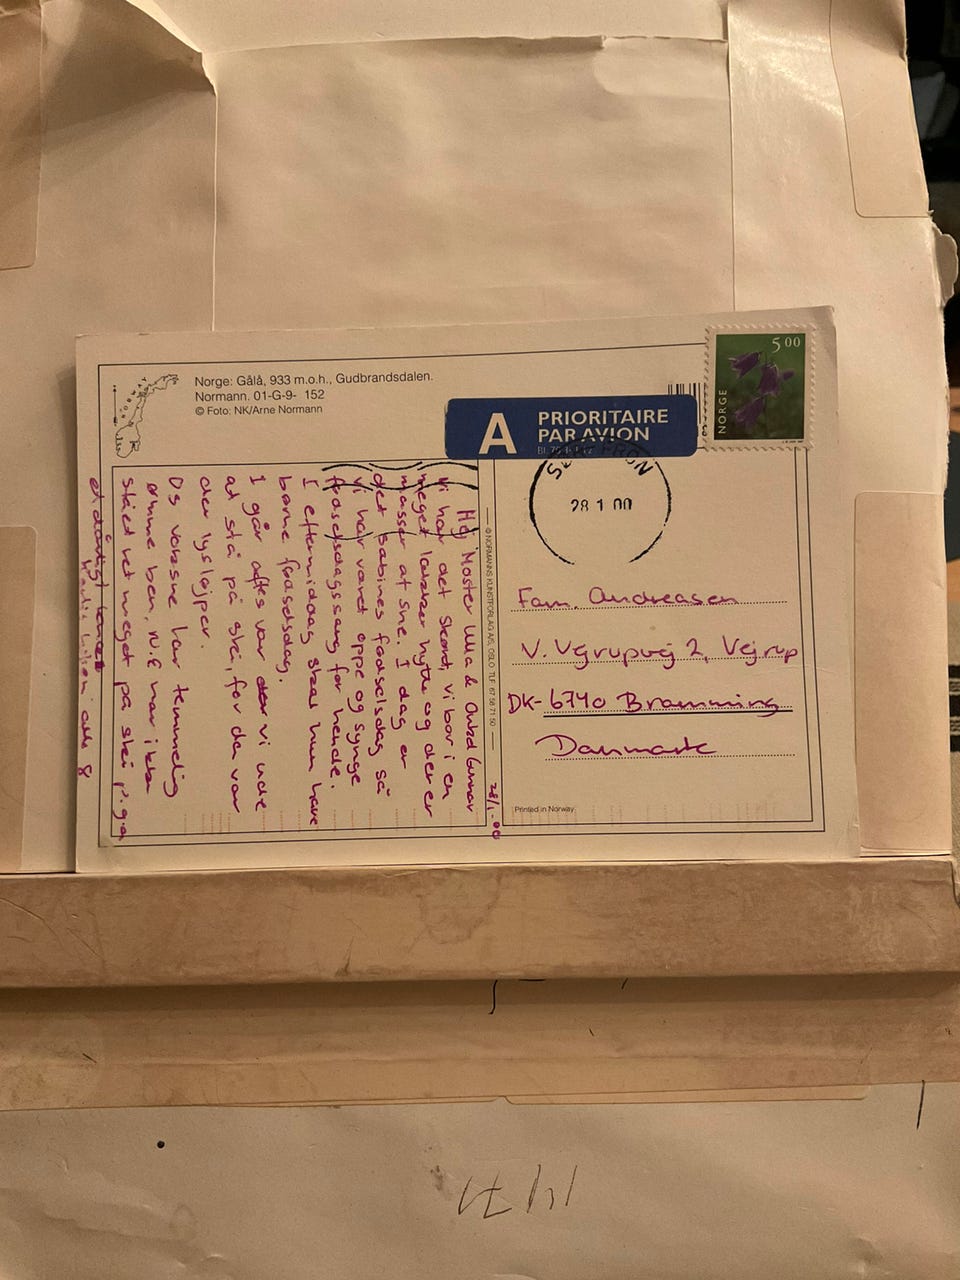 Norge: Gålå, 933 m.o.h., Gudbrandsdalen.
Normann. 01-G-9- 152
© Foto: NK/Arne Normann
NORWAY
A PRIORITAIRE
PAR AVION
NORGE
5 00
28 1 00
28/1-00
Hej Moster Ulla & Onkel Gunnar
Vi har det skønt, vi bor i en
meget lækker hytte og der er
masser af sne. I dag er
det Sabines fødselsdag så
vi har været oppe og synge
fødselsdagssang for hende.
I eftermiddag skal hun have
børne fødselsdag.
I går aftes var vi ude
at stå på ski, for der var
der lysløjper.
Os voksne har temmelig
ømme ben, m. har ikke
stået ret meget på ski p.g.a
et dårligt
© NORMANNS KUNSTFORLAG A/S, OSLO TLF. 67 58 71 50
Fam. Andreasen
V. Vejrupvej 2, Vejrup
DK-6740 Bramming
Danmark
Printed in Norway